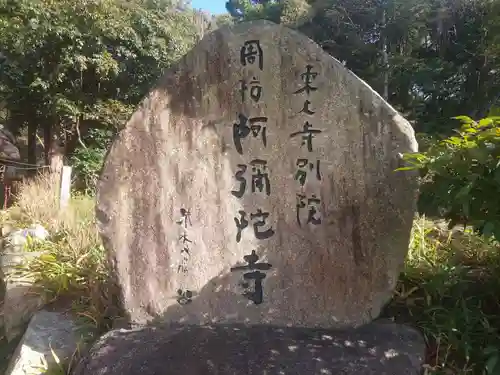 東大寺別院
周防阿彌陀寺